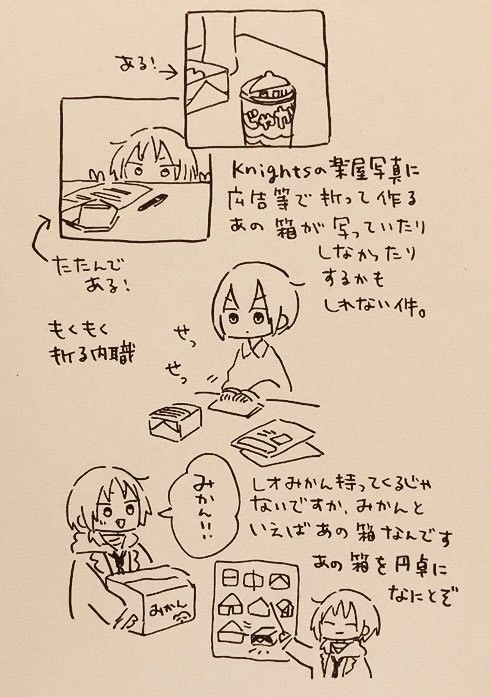 ある!
じゃが
たたんで
ある!
Knightsの楽屋写真に
広告等で折って作る
あの箱が写っていたり
しなかったり
するかも
しれない件。
もくもく
折る内職
せっ
せっ
みかん!!
みかん
レオみかん持ってくるじゃ
ないですか、みかんと
いえばあの箱なんです
あの箱を円卓に
なにとぞ